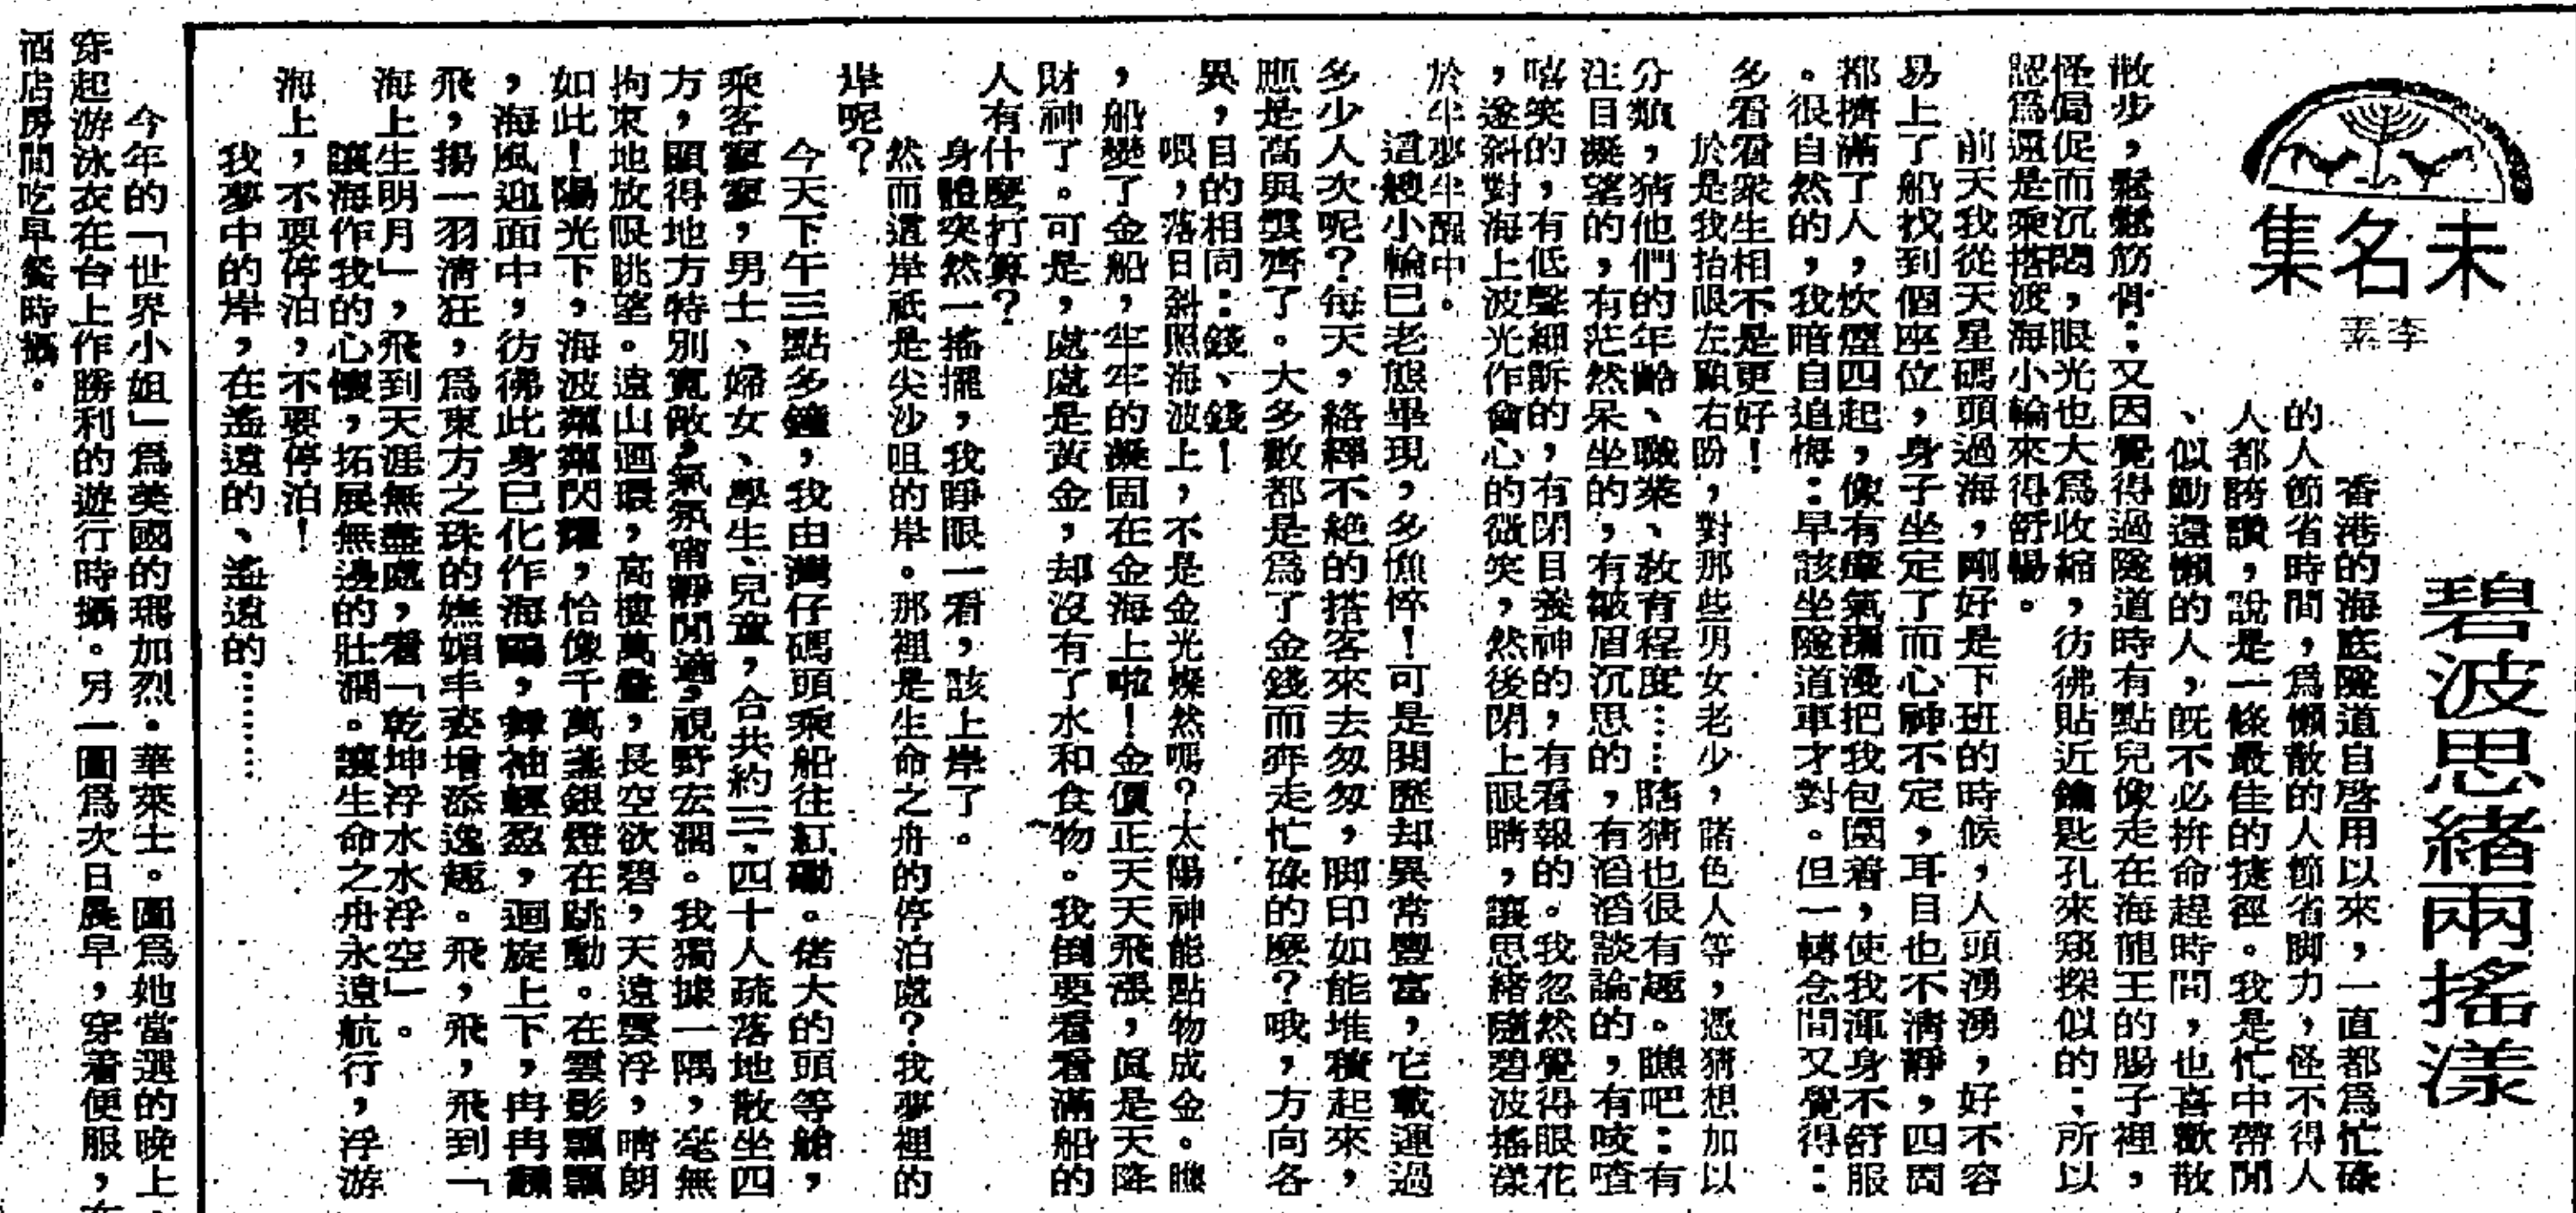 未名集
李素
碧波思緒兩搖漾
香港的海底隧道自啓用以來，一直都爲忙碌
的人節省時間，爲懶散的人節省脚力，怪不得人
人都誇讚，說是一條最佳的捷徑。我是忙中帶閒
、似勤還懶的人，旣不必拚命趕時間，也喜歡散
散步，鬆鬆筋骨；又因覺得過隧道時有點兒像走在海龍王的腸子裡，
怪侷促而沉悶，眼光也大爲收縮，彷彿貼近鑰匙孔來窺探似的；所以
認爲還是乘搭渡海小輪來得舒暢。
前天我從天星碼頭過海，剛好是下班的時候，人頭湧湧，好不容
易上了船找到個座位，身子坐定了而心神不定，耳目也不淸靜，四周
都擠滿了人，炊煙四起，像有羣氣瀰漫把我包圍着，使我渾身不舒服
。很自然的，我暗自追悔：早該坐隧道車才對。但一轉念間又覺得：
多看看衆生相不是更好！
於是我抬眼左顧右盼，對那些男女老少，諸色人等，憑猜想加以
分類，猜他們的年齡、職業、敎育程度……瞎猜也很有趣。瞧吧：有
注目凝望的，有茫然呆坐的，有皺眉沉思的，有滔滔談論的，有吱喳
嘻笑的，有低聲細訴的，有閉目養神的，有看報的。我忽然覺得眼花
，遂斜對海上波光作會心的微笑，然後閉上眼睛，讓思緒隨碧波搖漾
於半夢半醒中。
這艘小輪已老態畢現，多憔悴！可是閱歷却異常豐富，它載運過
多少人次呢？每天，絡繹不絶的搭客來去匆匆，脚印如能堆積起來，
應是高與雲齊了。大多數都是爲了金錢而奔走忙碌的麽？哦，方向各
異，目的相同：錢、錢！
喂，落日斜照海波上，不是金光燦然嗎？太陽神能點物成金。瞧
，船變了金船，牢牢的凝固在金海上啦！金價正天天飛漲，眞是天降
財神了。可是，處處是黃金，却沒有了水和食物。我倒要看看滿船的
人有什麽打算？
身體突然一搖擺，我睜眼一看，該上岸了。
然而這岸祇是尖沙咀的岸。那裡是生命之舟的停泊處？我夢裡的
岸呢？
今天下午三點多鐘，我由灣仔碼頭乘船往紅磡。偌大的頭等艙，
乘客寥寥，男士、婦女、學生、兒童，合共約三、四十人疏落地散坐四
方，顯得地方特別寬敞，氣氛甯靜閒適，視野宏濶。我獨據一隅，毫無
拘束地放眼眺望。遠山迴環，高樓萬疊，長空欲碧，天遠雲浮，晴朗
如此！陽光下，海波粼粼閃耀，恰像千萬盞銀燈在跳動。在雲影飄飄
，海風迎面中，彷彿此身已化作海鷗，舞袖輕盈，迴旋上下，冉冉翩
飛，揚一羽淸狂，爲東方之珠的嫵媚丰姿增添逸趣。飛，飛，飛到「
海上生明月」，飛到天涯無盡處，看「乾坤浮水水浮空」。
讓海作我的心懷，拓展無邊的壯濶。讓生命之舟永遠航行，浮游
海上，不要停泊，不要停泊！
我夢中的岸，在遙遠的、遙遠的………
今年的「世界小姐」爲美國的瑪加烈．華萊士。圖爲她當選的晚上，
穿起游泳衣在台上作勝利的遊行時攝。另一圖爲次日晨早，穿着便服，在
酒店房間吃早餐時攝。